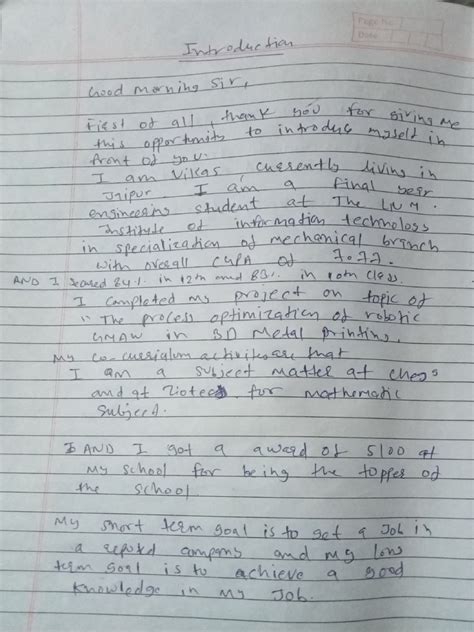 Page No.
Date
Introduction
Good morning Sir,
First of all, thank you for giving me
this opportunity to introduce myself in
front of you.
I am Vikas, currently living in
Jaipur I am a final year
engineering student at The LNM
Institute of information technology
in specialization of mechanical branch
with overall CGPA of 7.77.
AND I scored 84% in 12th and 83% in 10th class.
I completed my project on topic of
"The process optimization of robotic
GMAW in 3D Metal Printing.
My co-curriculum activities are that
I am a subject matter at chess
and at for mathematic
Subject.
AND I got a award of 5100 at
my school for being the topper of
the school.
My short term goal is to get a Job in
a reputed company and my long
term goal is to achieve a good
Knowledge in my Job.